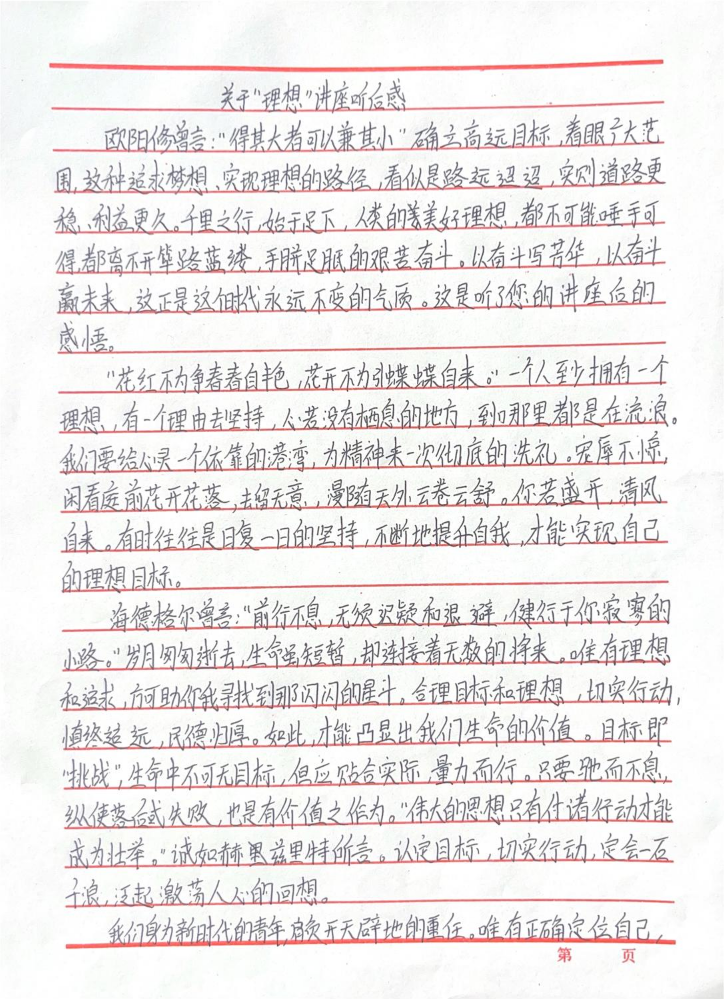 关于"理想"讲座听后感
欧阳修曾言:"得其大者可以兼其小"确立高远目标,着眼于大范
围,这种追求梦想、实现理想的路径,看似是路远迢迢,实则道路更
稳、利益更久。千里之行,始于足下,人类的美好理想,都不可能唾手可
得,都离不开筚路蓝缕,手胼足胝的艰苦奋斗。以奋斗写芳华,以奋斗
赢未来,这正是这个时代永远不变的气质。这是听了您的讲座后的
感悟。
"花红不为争春春自丰色,花开不为引蝶蝶自来。"一个人至少拥有一个
理想,有一个理由去坚持,心若没有栖息的地方,到哪里都是在流浪。
我们要给心灵一个依靠的港湾,为精神来一次彻底的洗礼。宠辱不惊,
闲看庭前花开花落,去留无意,漫随天外云卷云舒。你若盛开,清风
自来。有时往往是日复一日的坚持,不断地提升自我,才能实现自己
的理想目标。
海德格尔曾言:"前行不息,无须迟疑和退避,健行于你寂寥的
小路。"岁月匆匆逝去,生命虽短暂,却连接着无数的将来。唯有理想
和追求,方可助你我寻找到那闪闪的星斗。合理目标和理想,切实行动,
慎终追远,民德归厚。如此,才能凸显出我们生命的价值。目标即
"挑战",生命中不可无目标,但应贴合实际,量力而行。只要驰而不息,
纵使落后或失败,也是有价值之作为。"伟大的思想只有付诸行动才能
成为壮举。"诚如赫里兹里特所言。认定目标,切实行动,定会一石
千浪,泛起激荡人心的回想。
我们身为新时代的青年,肩负开天辟地的重任。唯有正确定位自己,
第 页